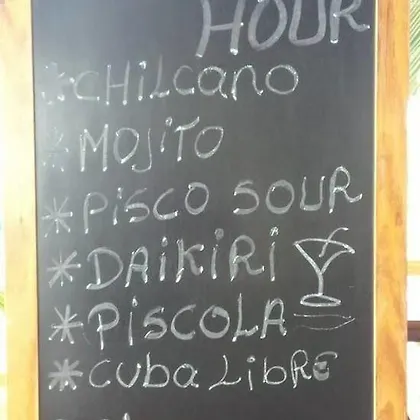 HOUR
* CHiLcano
* MOJiTO
* PiSCO SOUR
* DAiKiRi
* PiSCOLA
* CUbA LibRE